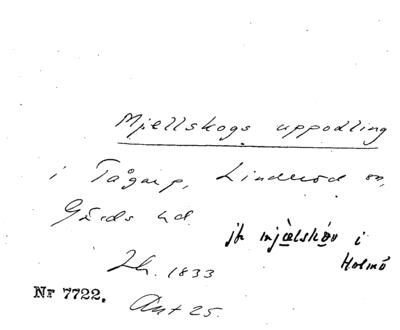 Mjellskogs uppodling
i Tågarp, Linderöd sn,
Gärds hd.
jfr mjælskov i
Holmö
Lh. 1833
Nr 7722.
Ant 25.